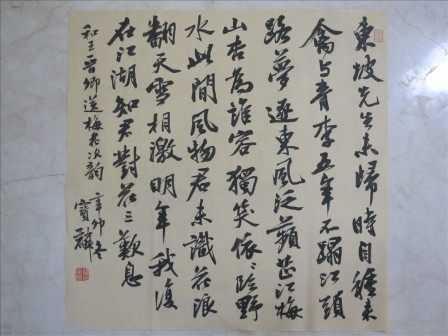 東坡先生未歸時自種來
禽与青李五年不蹋江頭
路夢逐東風泛蘋芷江梅
山杏為誰容獨笑依〻臨野
水此間風物君未識花浪
翻天雪相激明年我復
在江湖知君對花三歎息
和王晉卿送梅花次韵 辛卯冬
寶麟